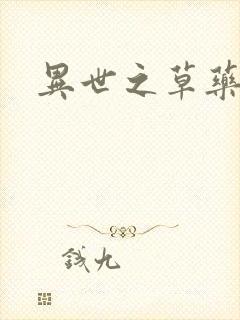 異世之草藥
錢九